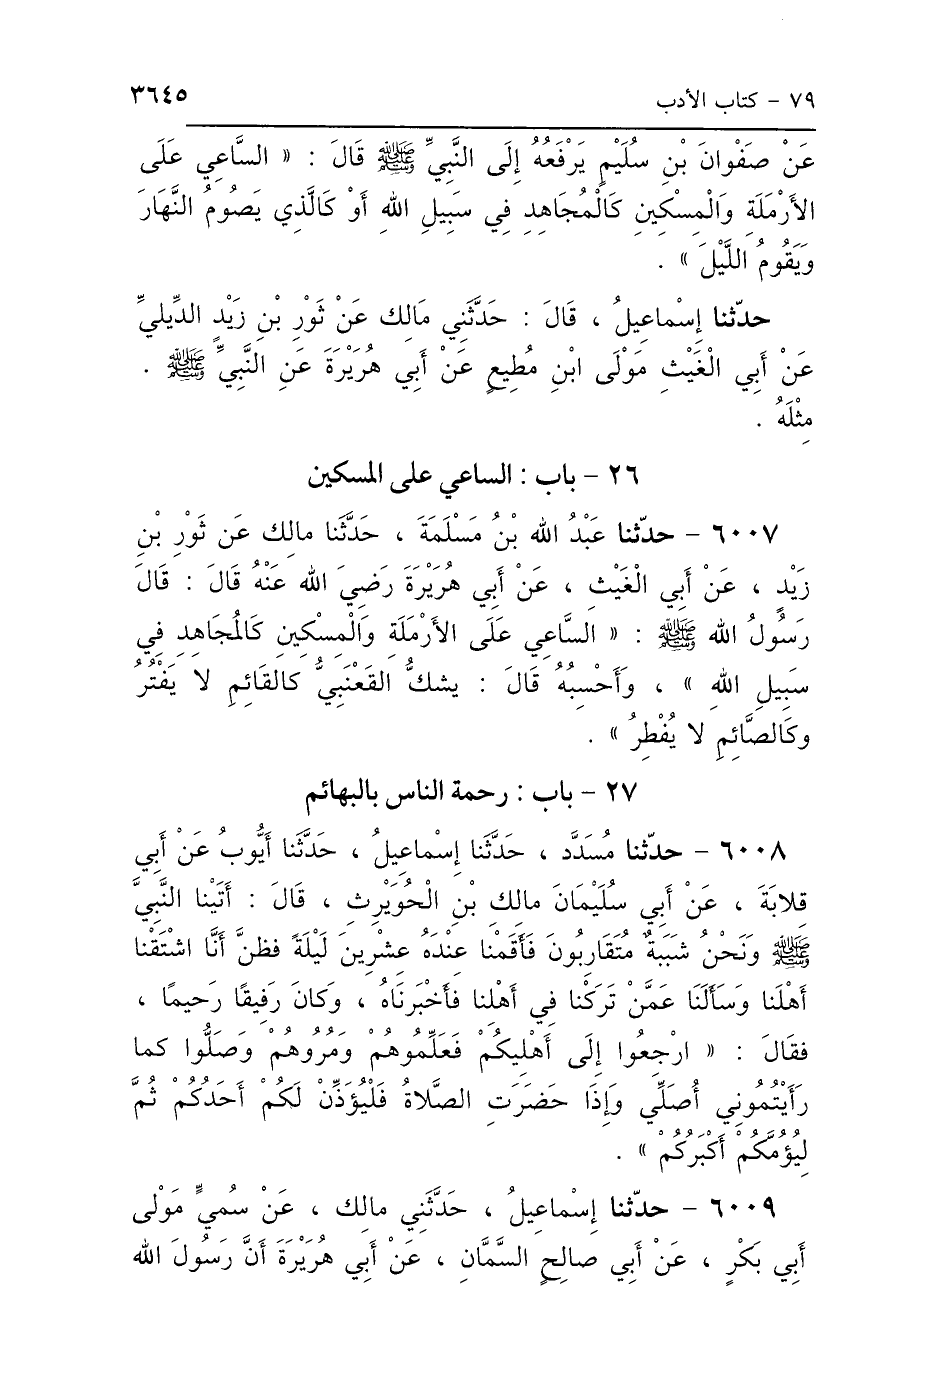 ٧٩ - كتاب الأدب ٣٦٤٥
عَنْ صَفْوانَ بْنِ سُلَيْمٍ يَرْفَعُهُ إِلَى النَّبِيِّ ﷺ قَالَ : « السَّاعِي عَلَى
الأَرْمَلَةِ وَالْمِسْكِينِ كَالْمُجَاهِدِ فِي سَبِيلِ اللهِ أَوْ كَالَّذِي يَصُومُ النَّهَارَ
وَيَقُومُ اللَّيْلَ » .
حدّثنا إِسْماعِيلُ ، قَالَ : حَدَّثَنِي مَالِك عَنْ ثَوْرِ بْنِ زَيْدٍ الدِّيلِيِّ
عَنْ أَبِي الْغَيْثِ مَوْلَى ابْنِ مُطِيعٍ عَنْ أَبِي هُرَيْرَةَ عَنِ النَّبِيِّ ﷺ .
مِثْلَهُ .
٢٦ - باب : الساعي على المسكين
٦٠٠٧ - حدّثنا عَبْدُ الله بْنُ مَسْلَمَةَ ، حَدَّثَنا مالِك عَن ثَوْرِ بْنِ
زَيْدٍ ، عَنْ أَبِي الْغَيْثِ ، عَنْ أَبِي هُرَيْرَةَ رَضِيَ الله عَنْهُ قَالَ : قَالَ
رَسُولُ الله ﷺ : « السَّاعِي عَلَى الأَرْمَلَةِ وَالْمِسْكِينِ كَالمُجَاهِدِ فِي
سَبِيلِ اللهِ » ، وَأَحْسِبُهُ قَالَ : يشكُّ القَعْنَبِيُّ كالقَائِمِ لا يَفْتُرُ
وكَالصَّائِمِ لا يُفْطِرُ » .
٢٧ - باب : رحمة الناس بالبهائم
٦٠٠٨ - حدّثنا مُسَدَّد ، حَدَّثَنا إِسْماعِيلُ ، حَدَّثَنا أَيُّوبُ عَنْ أَبِي
قِلابَةَ ، عَنْ أَبِي سُلَيْمَانَ مالِكِ بْنِ الْحُوَيْرِثِ ، قَالَ : أَتَيْنا النَّبِيَّ
ﷺ وَنَحْنُ شَبَبَةٌ مُتَقَارِبُونَ فَأَقَمْنا عِنْدَهُ عِشْرِينَ لَيْلَةً فظنَّ أَنَّا اشْتَقْنا
أَهْلَنا وَسَأَلَنا عَمَّنْ تَرَكْنا فِي أَهْلِنا فأَخْبَرنَاهُ ، وَكانَ رَفِيقًا رَحِيمًا ،
فقَالَ : « ارْجِعُوا إِلَى أَهْلِيكُمْ فَعَلِّمُوهُمْ وَمُرُوهُمْ وَصَلُّوا كما
رَأَيْتُمُونِي أُصَلِّي وَإِذَا حَضَرَتِ الصَّلاةُ فَلْيُؤَذِّنْ لَكُمْ أَحَدُكُمْ ثُمَّ
لِيُؤُمَّكُمْ أَكْبَرُكُمْ » .
٦٠٠٩ - حدّثنا إِسْماعِيلُ ، حَدَّثَنِي مالِك ، عَنْ سُمَيٍّ مَوْلى
أَبِي بَكْرٍ ، عَنْ أَبِي صالِحٍ السَّمَّانِ ، عَنْ أَبِي هُرَيْرَةَ أَنَّ رَسُولَ الله